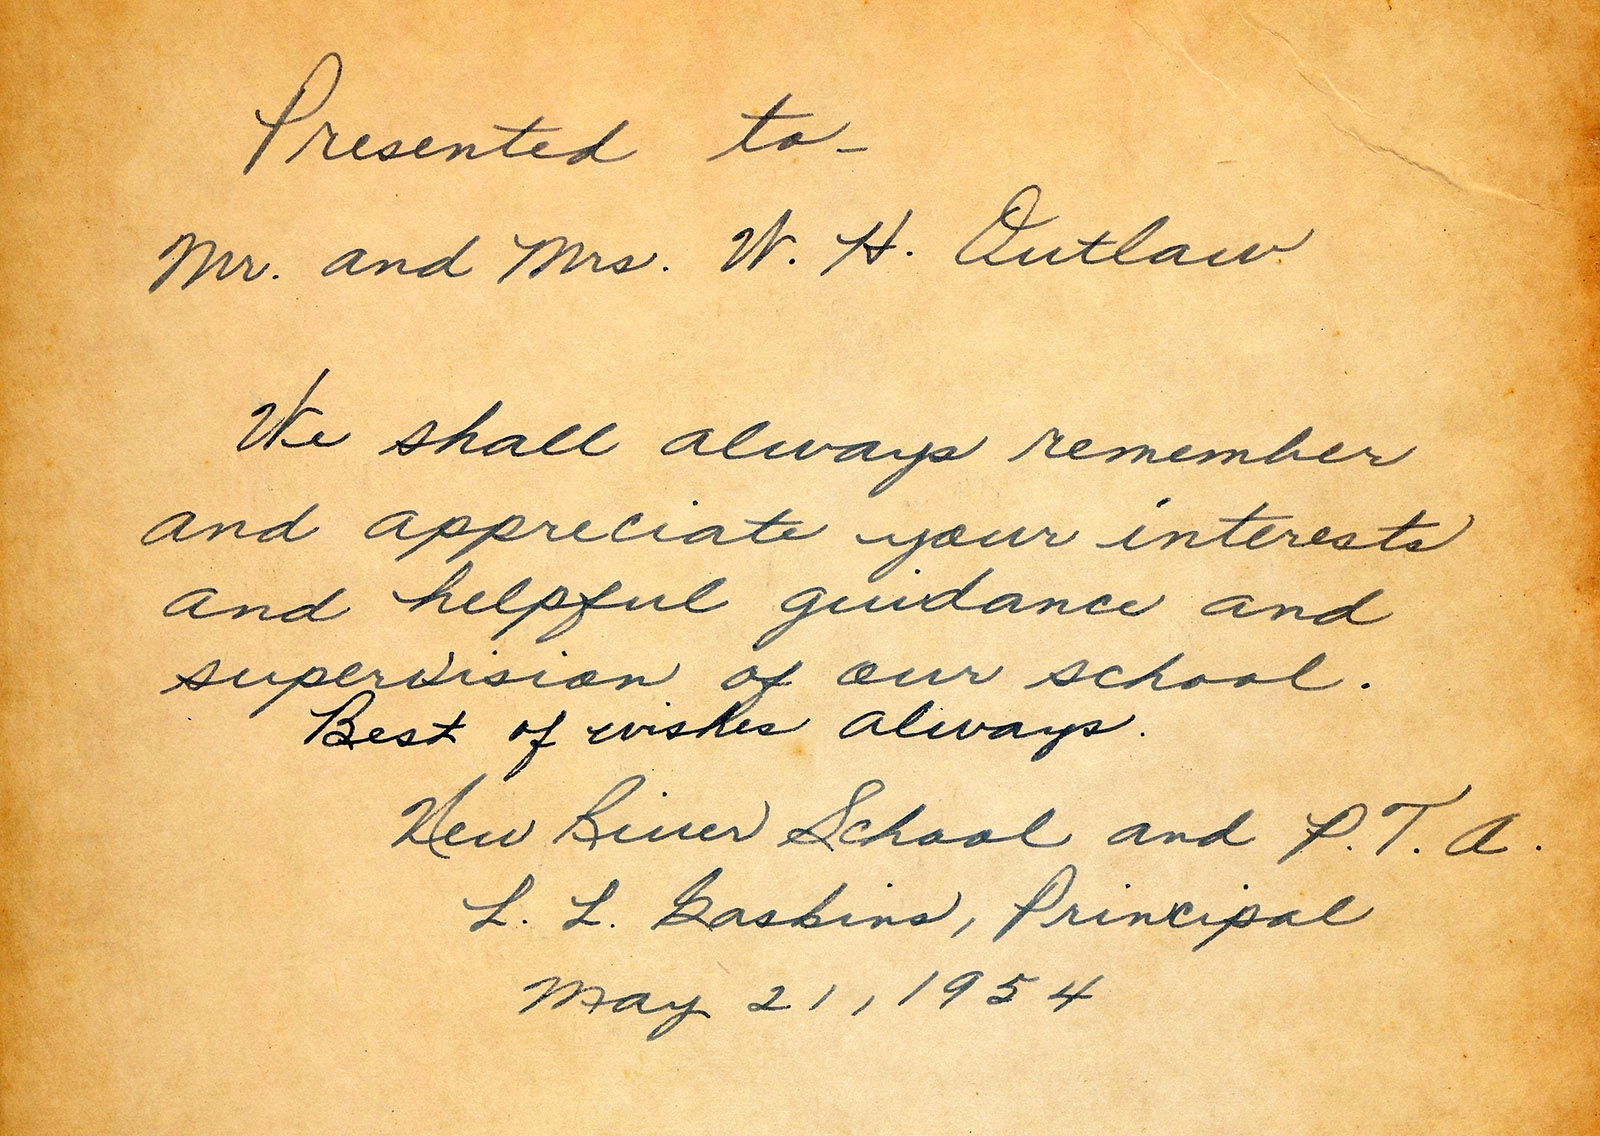 Presented to-
Mr. and Mrs. W. H. Outlaw
We shall always remember
and appreciate your interests
and helpful guidance and
supervision of our school.
Best of wishes always.
New River School and P.T.A.
L. L. Gaskins, Principal
May 21, 1954